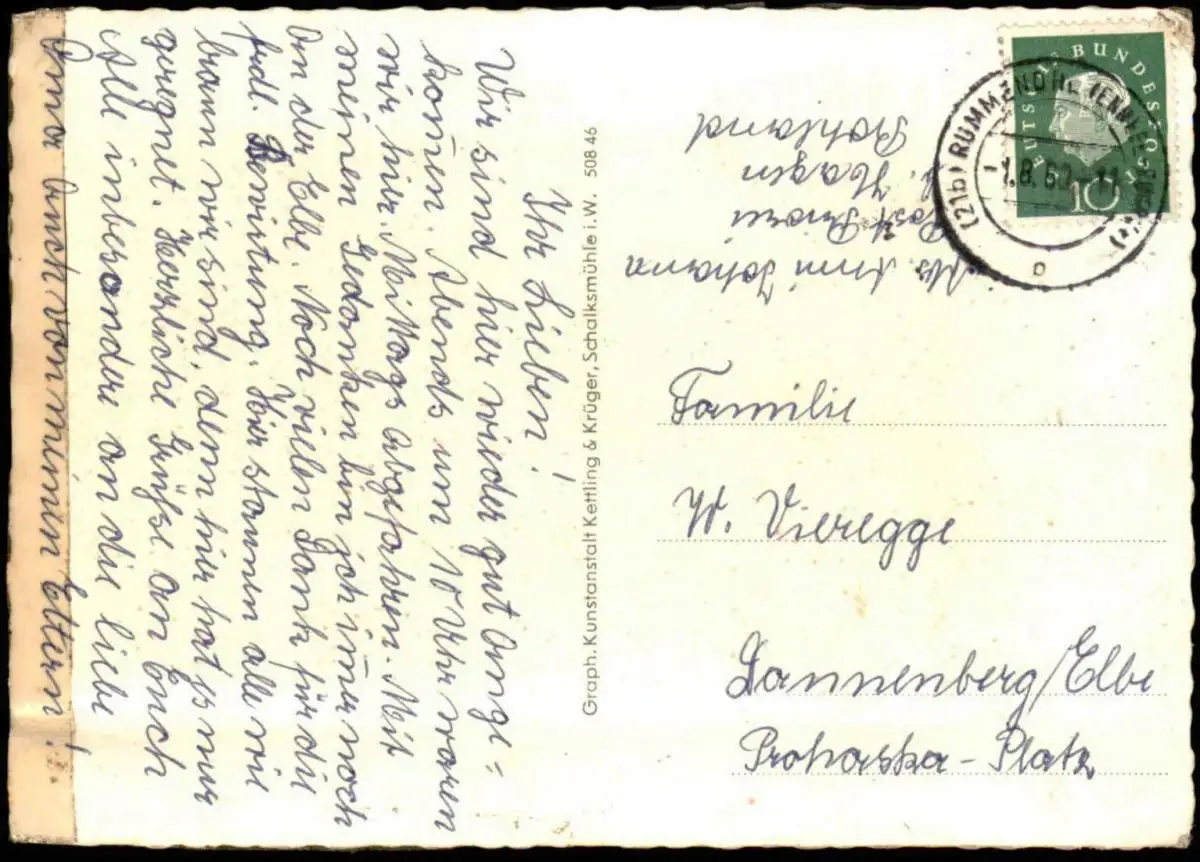 Ihr Lieben!
Wir sind hier wieder gut ange=
komen. Abends um 10 Uhr waren
wir hier. Mittags abgefahren. Mit
meinen Gedanken bin ich imer noch
an der Elbe. Noch vielen Dank für die
frdl. Bewirtung. Hier staunen alle wie
braun wir sind, denn hier hat es nur
geregnet. Herzliche Grüße an Euch
Alle insbesondere an die liebe
Oma auch von meinen Eltern!
Graph. Kunstanstalt Kettling & Krüger, Schalksmühle i.W. 508 46
DEUTSCHE BUNDESPOST
10
(21b) RUMMENOHL (ENNEPETAL)
-1.8.60-11
a
Abs. Anni Johanna
Post
Hagen
Familie
W. Vieregge
Dannenberg/Elbe
Prohaska-Platz